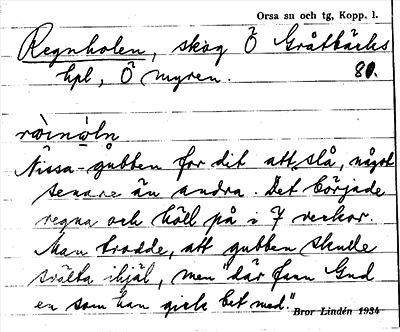 Orsa sn och tg, Kopp. l.
Regnholen, skog Ö Gråtbäcks
hpl, Ö myren. 80.
ròinòln
Nissa-gubben for dit att slå, något
senare än andra. Det började
regna och höll på i 7 veckor.
Man trodde, att gubben skulle
svälta ihjäl, men "där fann Gud
en som han gick bet med."
Bror Lindén 1934